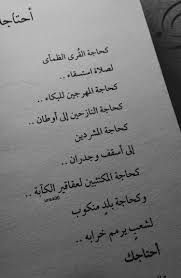 أحتاجك
كحاجة القُرى الظمأى
لصلاة استسقاء ..
كحاجة المهرجين للبكاء ..
كحاجة النازحين إلى أوطان ..
كحاجة المشردين
إلى أسقف وجدران ..
كحاجة المكتئبين لعقاقير الكآبة ..
وكحاجة بلدٍ منكوب
لشعبٍ يرمم خرابه ..
أحتاجك